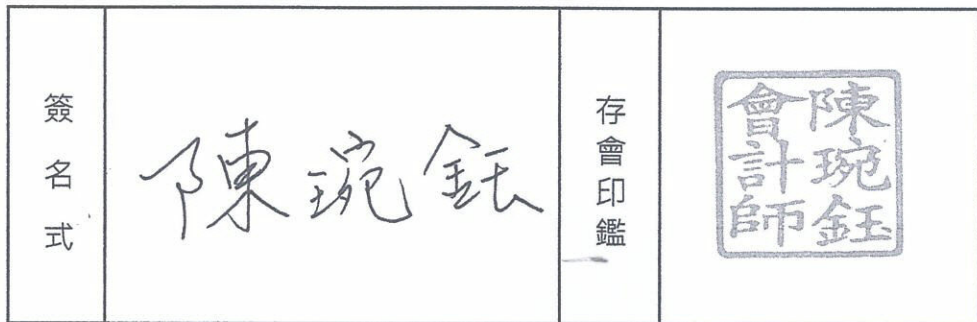 簽名式
陳琬鈺
存會印鑑
陳琬鈺
會計師